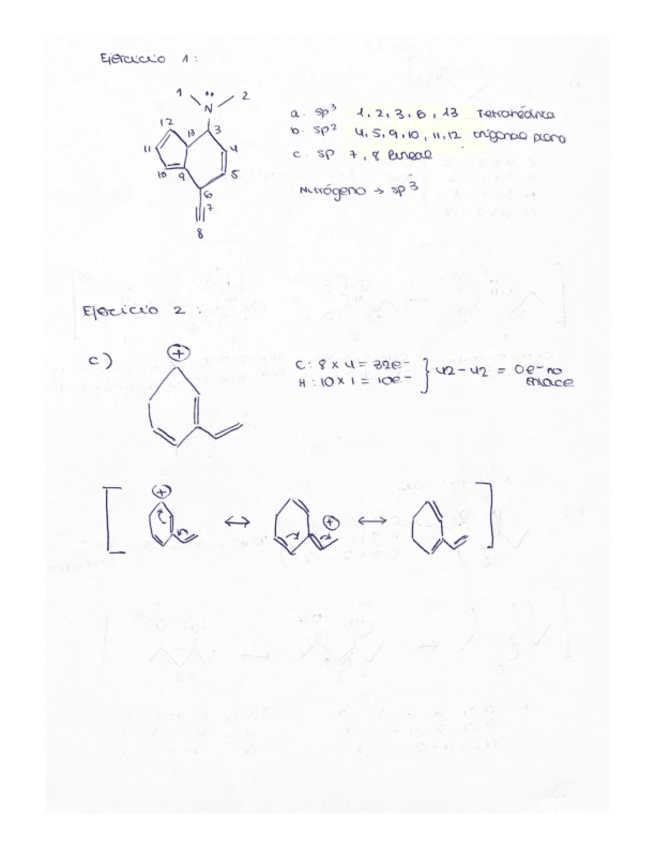 Ejercicio 1:
1 •• 2
N
12 13 3
11 4
10 9 5
6
7
8
a. sp3 1, 2, 3, 6, 13 Tetraédrica
b. sp2 4, 5, 9, 10, 11, 12 trigonal plano
c. sp 7, 8 lineal
Nitrógeno → sp3
Ejercicio 2:
c)
+
C: 8 x 4 = 32e-
H: 10 x 1 = 10e-
} 42-42 = 0e- no
enlace
[ + ↔ + ↔ ]